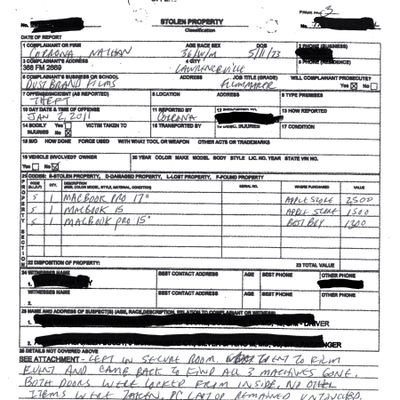 STOLEN PROPERTY
Classification
No.
No.
DATE OF REPORT
1 COMPLAINANT OR FIRM AGE RACE SEX DOB 2 PHONE (BUSINESS)
CORDONA NATHAN 36/W/M 5/11/73
3 COMPLAINANT'S ADDRESS CITY PHONE (RESIDENCE)
366 FM 2669 LAWRENCEVILLE
6 COMPLAINANT'S BUSINESS OR SCHOOL ADDRESS JOB TITLE (GRADE) WILL COMPLAINANT PROSECUTE?
DUST BRAND FILMS FILMMAKER Yes No
7 OFFENSE/INCIDENT (AS REPORTED) 8 LOCATION ADDRESS 9 TYPE PREMISES
THEFT
10 DAY DATE & TIME OF OFFENSE 11 REPORTED BY 13 HOW REPORTED
JAN 2, 2011 CORDONA
14 BODILY INJURIES Yes No VICTIM TAKEN TO 16 TRANSPORTED BY INJURIES 17 CONDITION
18 M/O HOW DONE FORCE USED WITH WHAT TOOL OR WEAPON OTHER ACTS OR TRADEMARKS
19 VEHICLE INVOLVED OWNER 20 YEAR COLOR MAKE MODEL BODY STYLE LIC. NO. YEAR STATE VIN NO.
Yes No
21 CODES: S-STOLEN PROPERTY, D-DAMAGED PROPERTY, L-LOST PROPERTY, F-FOUND PROPERTY
CODE QTY. DESCRIPTION SERIAL NO. WHERE PURCHASED VALUE
S 1 MACBOOK PRO 17" APPLE STORE 2500
S 1 MACBOOK 15 APPLE STORE 1500
S 1 MACBOOK PRO 15" BEST BUY 1300
PROPERTY SECTION
22 DISPOSITION OF PROPERTY: 23 TOTAL VALUE
24 WITNESSES NAME BEST CONTACT ADDRESS AGE BEST PHONE OTHER PHONE
1.
WITNESSES NAME BEST CONTACT ADDRESS AGE BEST PHONE OTHER PHONE
2.
25 NAME AND ADDRESS OF SUSPECT(S) (AGE, RACE, DESCRIPTION, RELATION TO COMPLAINANT OR WITNESS)
1. DRIVER
2.
26 DETAILS NOT COVERED ABOVE
SEE ATTACHMENT - LEFT IN SECURE ROOM. WENT TO FILM
EVENT AND CAME BACK TO FIND ALL 3 MACHINES GONE.
BOTH DOORS WERE LOCKED FROM INSIDE. NO OTHER
ITEMS WERE TAKEN. PC LAPTOP REMAINED UNTOUCHED.